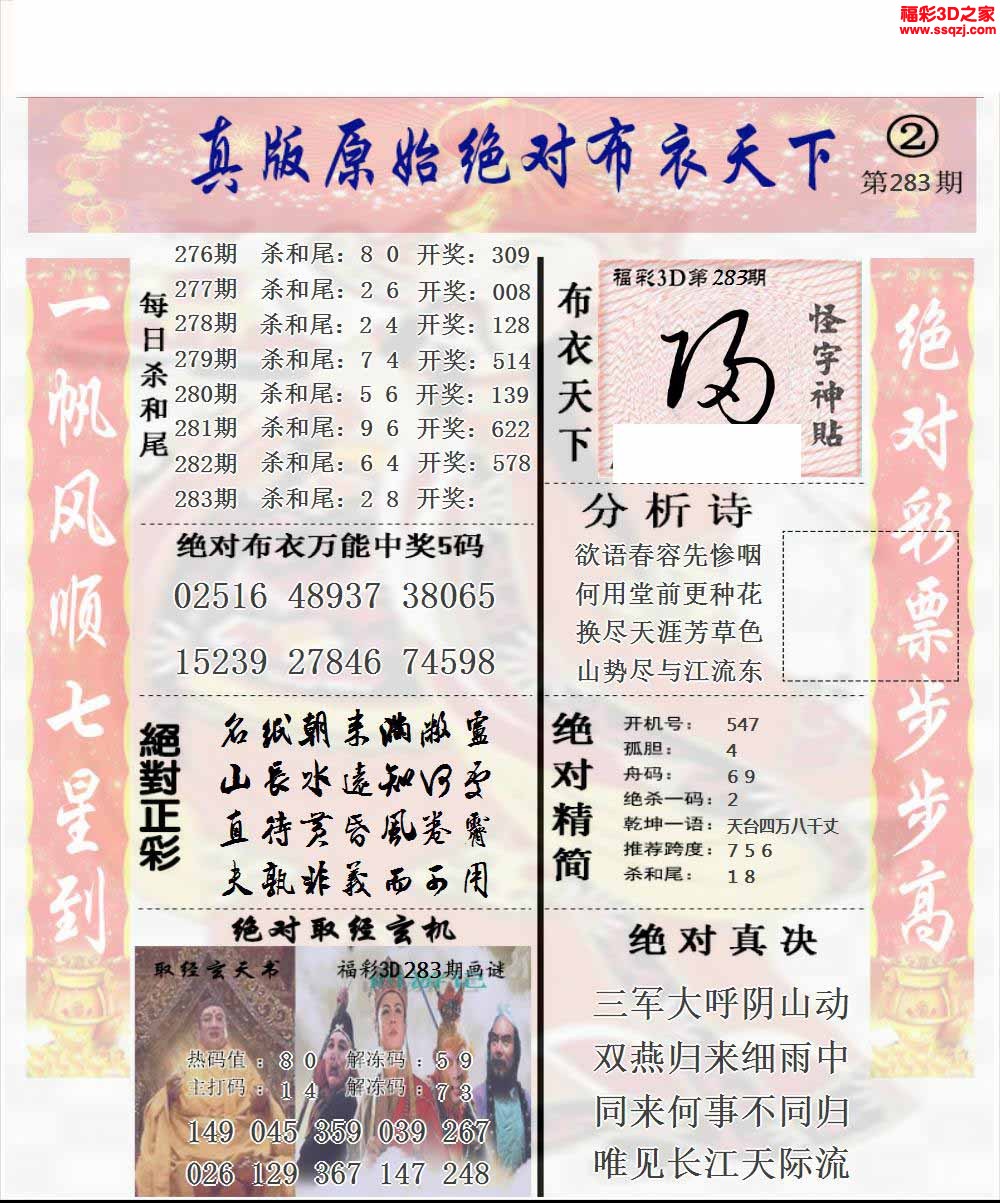 福彩3D之家
www.ssqzj.com
真版原始绝对布衣天下
②
第283期
一帆风顺七星到
每日杀和尾
276期 杀和尾：8 0 开奖：309
277期 杀和尾：2 6 开奖：008
278期 杀和尾：2 4 开奖：128
279期 杀和尾：7 4 开奖：514
280期 杀和尾：5 6 开奖：139
281期 杀和尾：9 6 开奖：622
282期 杀和尾：6 4 开奖：578
283期 杀和尾：2 8 开奖：
绝对布衣万能中奖5码
02516 48937 38065
15239 27846 74598
絕對正彩
名纸朝来满敝庐
山長水遠知何处
直待黄昏風卷霽
夫孰非義而可用
绝对取经玄机
取经玄天书
福彩3D283期画谜
热码值：8 0 解冻码：5 9
主打码：1 4 解冻码：7 3
149 045 359 039 267
026 129 367 147 248
布衣天下
福彩3D第283期
怪字神贴
分析诗
欲语春容先惨咽
何用堂前更种花
换尽天涯芳草色
山势尽与江流东
绝对精简
开机号： 547
孤胆： 4
舟码： 6 9
绝杀一码：2
乾坤一语：天台四万八千丈
推荐跨度：7 5 6
杀和尾： 1 8
绝对真决
三军大呼阴山动
双燕归来细雨中
同来何事不同归
唯见长江天际流
绝对彩票步步高